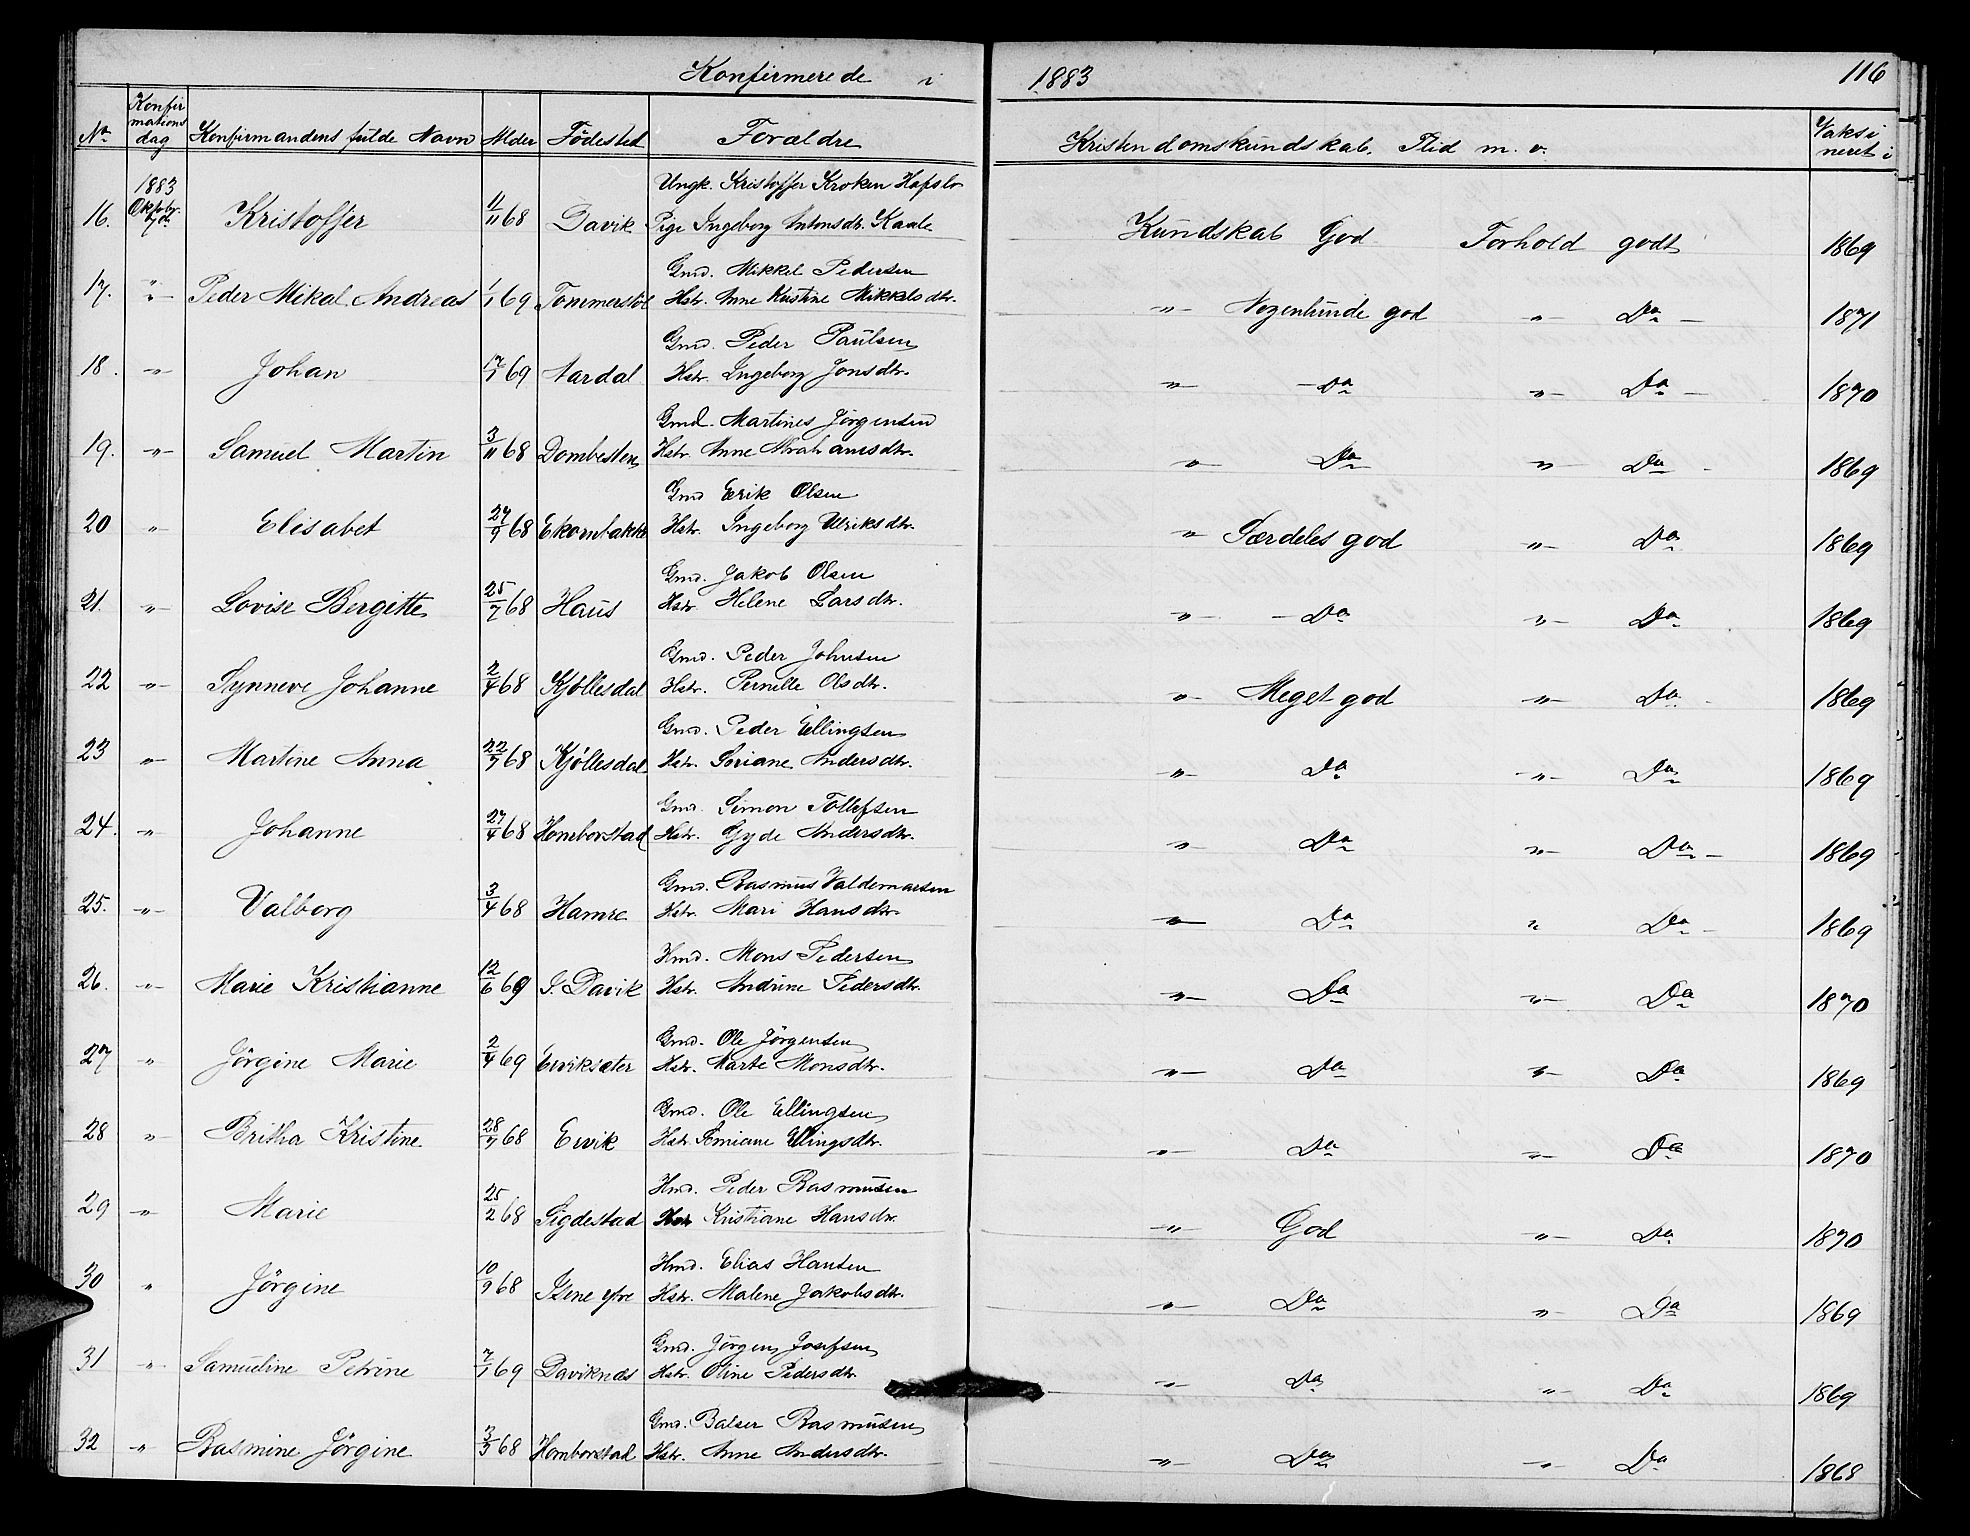 Konfirmerede i 1883 116
No Konfirmationsdag Konfirmandens fulde Navn Alder Födested Forældre Kristendomskundskab. Flid m. v. Vaksineret i
1883
Ungk. Kristoffer Kroken Hafslo
16. Oktobr. 7de Kristoffer 11/11 68 Davik Pige Ingeborg Antonsdr. Kaale Kundskab God Forhold godt 1869
Gmd. Mikkel Pedersen
17. -"- Peder Mikal Andreas 1/1 69 Tommerstöl Hstr. Anne Kristine Mikkelsdtr. -"- Nogenlunde god -"- Do - 1871
Gmd. Peder Paulsen
18. -"- Johan 17/7 69 Aardal Hstr. Ingeborg Jonsdtr. -"- -Do -"- Do - 1870
Gmd. Martines Jörgensen
19. -"- Samuel Martin 3/11 68 Dombesten Hstr. Anne Abrahamsdtr. -"- Do -"- Do - 1869
Gmd Erik Olsen
20 -"- Elisabet 27/9 68 Hstr. Ingeborg Ulriksdtr. -"- Særdeles god -"- Do 1869
Gmd. Jakob Olsen
21. -"- Lovise Bergitte 25/7 68 Haus Hstr. Helene Larsdtr. -"- -Do -"- Do 1869
Gmd. Peder Johnsen
22 -"- Synneve Johanne 2/4 68 Kjöllesdal Hstr. Pernille Olsdtr. -"- Meget god -"- Do. 1869
Gmd. Peder Ellingsen
23 -"- Martine Anna 22/7 68 Kjöllesdal Hstr. Soriane Andersdtr. -"- Do -"- Do 1869
Gmd. Simon Tollefsen
24. -"- Johanne 27/4 68 Homborstad Hstr. Gyde Andersdtr. -"- Do -"- Do - 1869
Gmd. Rasmus Valdemarsen
25. -"- Valborg 3/4 68 Hamre Hstr. Mari Hansdtr. -"- Do " Do - 1869
Hmd. Mons Pedersen
26. -"- Marie Kristianne 12/6 69 I. Davik Hstr. Andrine Pedersdtr. -"- Do -"- Do 1870
Gmd. Ole Jörgensen
27 " Jörgine Marie 2/4 69 Erviksæter Hstr. Marte Monsdtr. -"- Do -"- Do 1869
Gmd. Ole Ellingsen
28 -"- Britha Kristine 28/7 68 Ervik Hstr. Ellingsdtr. -"- Do -"- Do 1870
Hmd. Peder Rasmusen
29 -"- Marie 25/2 68 Sigdestad Hstr Kristiane Hansdtr. -"- God -"- Do 1870
Hmd. Elias Hansen
30 " Jörgine 10/9 68 Isene ytre Hstr. Malene Jakobsdtr. -"- Do -"- Do 1869
Gmd. Jörgen Josefsen
31 -"- Samueline Petrine 7/1 69 Daviknes Hstr. Oline Pedersdtr. -"- Do -"- Do 1869
Gmd. Balser Rasmusen
32 -"- Rasmine Jörgine 3/3 68 Homborstad Hstr. Anne Andersdtr. -"- Do -"- Do 1868